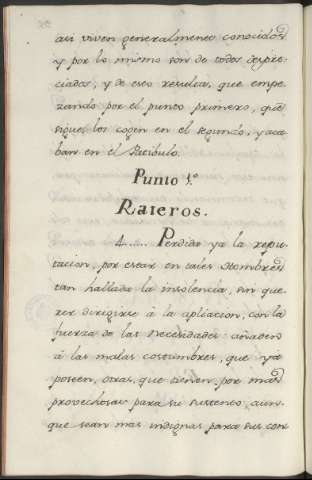 asi viven generalmente conocidos
y por lo mismo son de todos despre-
ciados, y de esto resulta, que empe-
zando por el punto primero, que
sigue, los cogen en el segundo, y aca-
ban en el Patibulo.
Punto 1.º
Rateros.
4...... Perdida ya la repu-
tacion, por estar en tales Hombres
tan hallada la insolencia, sin que-
rer dirigirse á la aplicacion, con la
fuerza de las necesidades añaden
á las malas costumbres, que ya
poseen, otras, que tienen por mas
provechosas para su sustento, aun-
que sean mas indignas para sus con